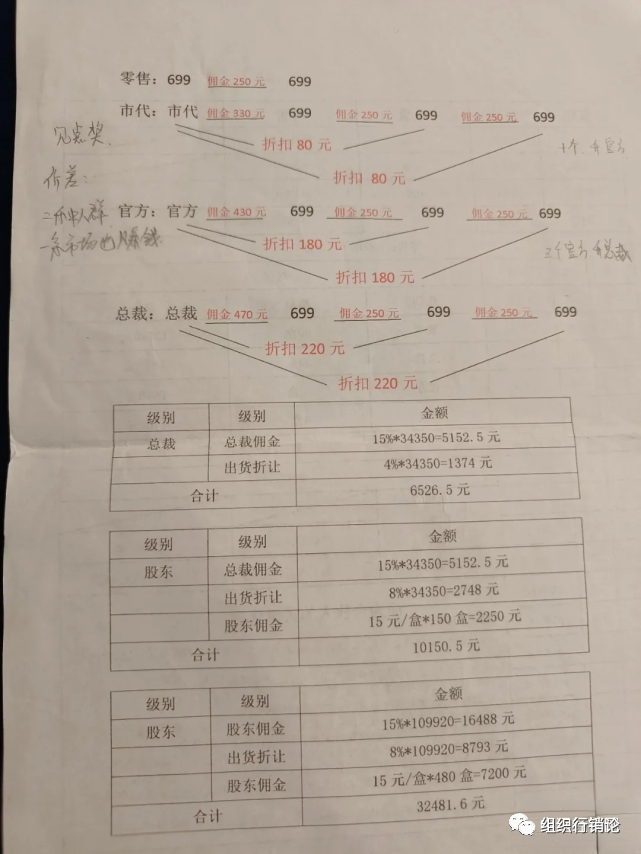 零售：699 佣金 250 元 699
市代：市代 佣金 330 元 699 佣金 250 元 699 佣金 250 元 699
折扣 80 元
折扣 80 元
见点奖
价差：
官方：官方 佣金 430 元 699 佣金 250 元 699 佣金 250 元 699
折扣 180 元
折扣 180 元
总裁：总裁 佣金 470 元 699 佣金 250 元 699 佣金 250 元 699
折扣 220 元
折扣 220 元
级别 级别 金额
总裁 总裁佣金 15%*34350=5152.5 元
出货折让 4%*34350=1374 元
合计 6526.5 元
级别 级别 金额
股东 总裁佣金 15%*34350=5152.5 元
出货折让 8%*34350=2748 元
股东佣金 15 元/盒*150 盒=2250 元
合计 10150.5 元
级别 级别 金额
股东 股东佣金 15%*109920=16488 元
出货折让 8%*109920=8793 元
股东佣金 15 元/盒*480 盒=7200 元
合计 32481.6 元
组织行销论